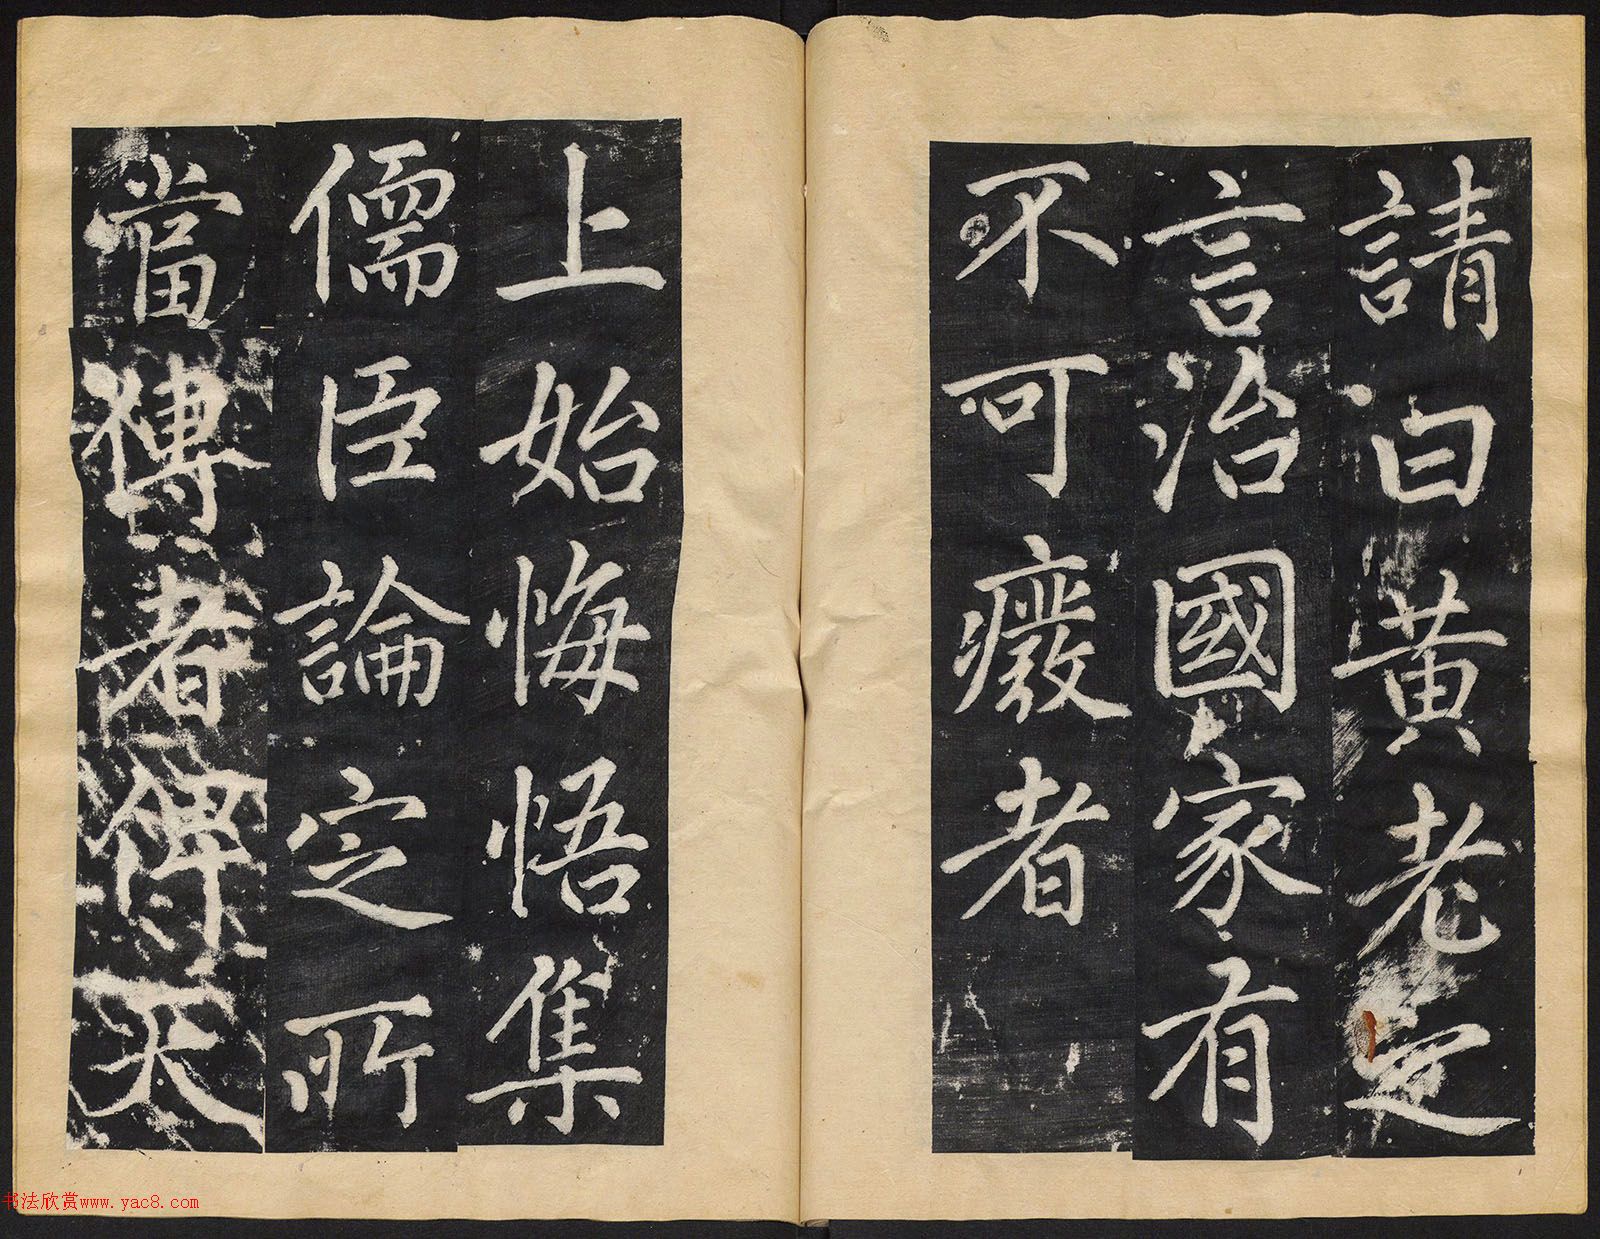 請白黃老是
言治國家有
不可癈者
上始悔悟集
儒臣論定所
當傳者俾天
书法欣赏www.yac8.com